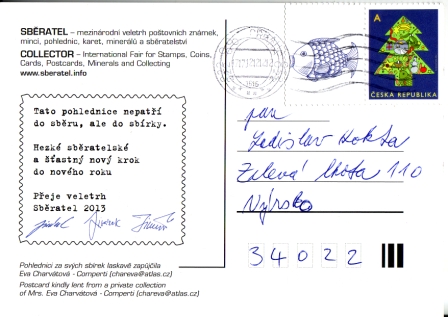 SBĚRATEL – mezinárodní veletrh poštovních známek,
mincí, pohlednic, karet, minerálů a sběratelství
COLLECTOR – International Fair for Stamps, Coins,
Cards, Postcards, Minerals and Collecting
www.sberatel.info
A
ČESKÁ REPUBLIKA
Tato pohlednice nepatří
do sběru, ale do sbírky.
Hezké sběratelské
a šťastný nový krok
do nového roku
Přeje veletrh
Sběratel 2013
pan
Ladislav
110
Nýrsko
34022
Pohlednici ze svých sbírek laskavě zapůjčila
Eva Charvátová - Comperti (chareva@atlas.cz)
Postcard kindly lent from a private collection
of Mrs. Eva Charvátová - Comperti (chareva@atlas.cz)